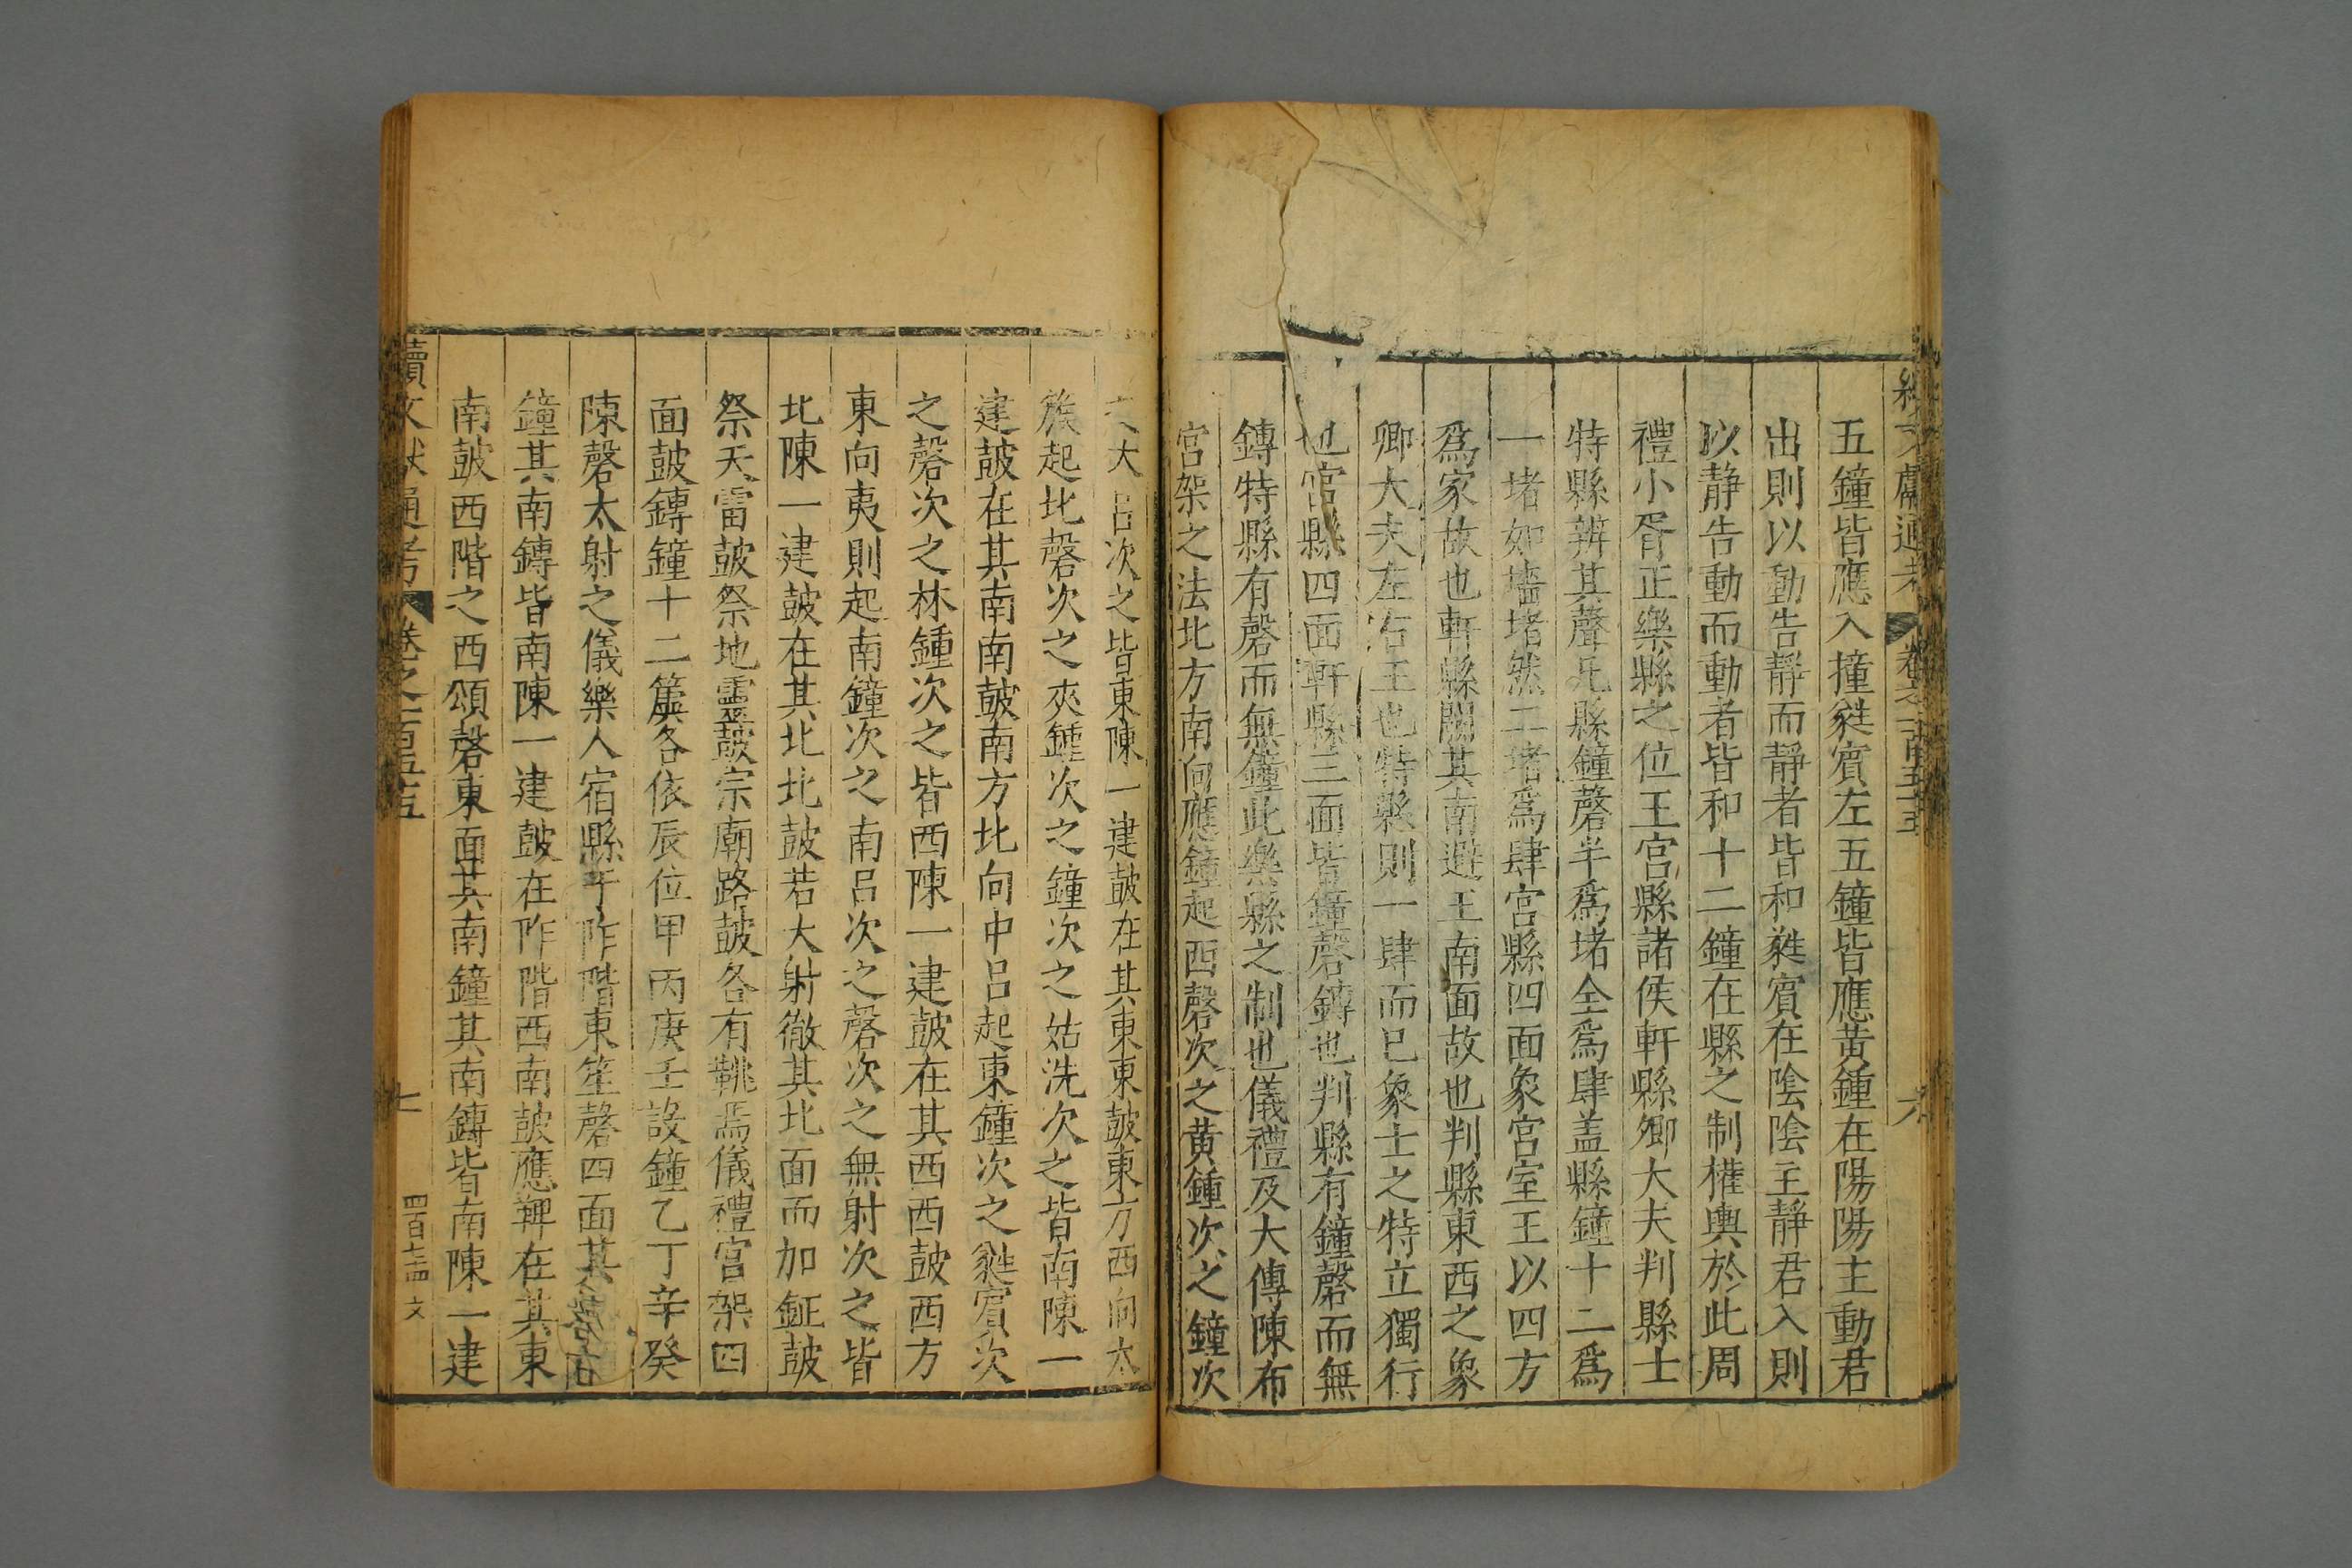 五鐘皆應入撞蕤賓左五鐘皆應黃鍾在陽陽主動君
出則以動告靜而靜者皆和蕤賓在陰陰主靜君入則
以靜告動而動者皆和十二鐘在縣之制權輿於此周
禮小胥正樂縣之位王宮縣諸侯軒縣卿大夫判縣士
特縣辨其聲凡縣鐘磬半為堵全為肆盖縣鐘十二為
一堵如墻堵然二堵為肆宮縣四面象宮室王以四方
為家故也軒縣闕其南避王南面故也判縣東西之象
卿大夫左右王也特縣則一肆而已象士之特立獨行
也宮縣四面軒縣三面皆鐘磬鎛也判縣有鐘磬而無
鎛特縣有磬而無鐘此樂縣之制也儀禮及大傳陳布
宮架之法北方南向應鐘起西磬次之黄鍾次之鐘次
大呂次之皆東陳一建鼓在其東東鼓東方西向太
簇起北磬次之夾鍾次之鐘次之姑洗次之皆南陳一
建鼓在其南南鼓南方北向中呂起東鐘次之蕤賓次
之磬次之林鍾次之皆西陳一建鼓在其西西鼓西方
東向夷則起南鐘次之南呂次之磬次之無射次之皆
北陳一建鼓在其北北鼓若大射徹其北面而加鉦鼓
祭天雷鼓祭地靈鼓宗廟路鼓各有鞉焉儀禮宮架四
面鼓鎛鐘十二簴各依辰位甲丙庚壬設鐘乙丁辛癸
陳磬太射之儀樂人宿縣于阼階東笙磬四面其
鐘其南鎛皆南陳一建鼓在阼階西南鼓應鞞在其東
南鼓西階之西頌磬東面其南鐘其南鎛皆南陳一建
續文獻通考 卷之一百五 七 四百七十四 文